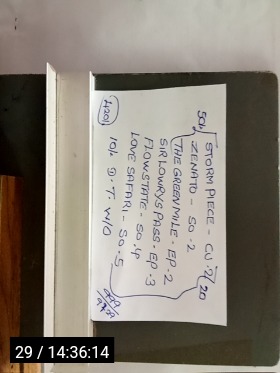 50/- STORM PIECE - CU-2/20
ZENATO - SO.2
THE GREEN MILE - EP.2
SIR LOWRYS PASS - EP.3
FLOWSTATE - SO.4
LOVE SAFARI - SO.5
10/- D.T. W/O
4201
29 / 14:36:14